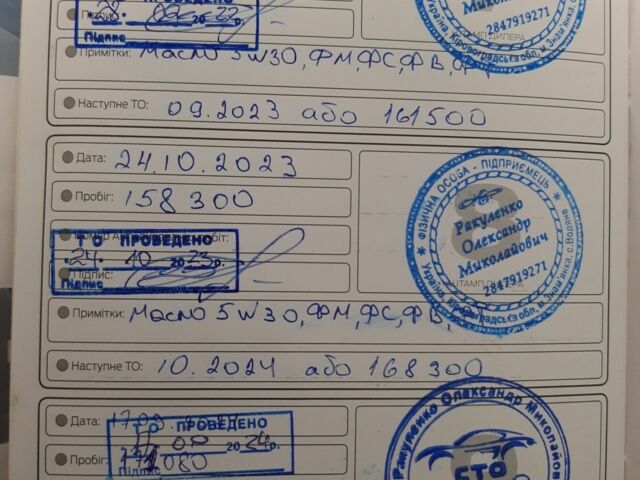 ПРОВЕДЕНО
Підпис
2847919271
Україна, Кіровоградська обл, м.Знам'янка
Примітки: Масло 5W30, ФМ, ФС, ФВ,
Наступне ТО: 09.2023 або 161500
Дата: 24.10.2023
Пробіг: 158 300
ТО ПРОВЕДЕНО
24. 10 2023р.
Підпис
ФІЗИЧНА ОСОБА - ПІДПРИЄМЕЦЬ
Ракуленко
Олександр
Миколайович
2847919271
Україна, Кіровоградська обл, м.Знам'янка, с.Водяне
Примітки: Масло 5W30, ФМ, ФС, ФВ,
Наступне ТО: 10.2024 або 168300
Дата:
ТО ПРОВЕДЕНО
2024р.
Пробіг:
Підпис
Ракуленко Олександр Миколайович
СТО